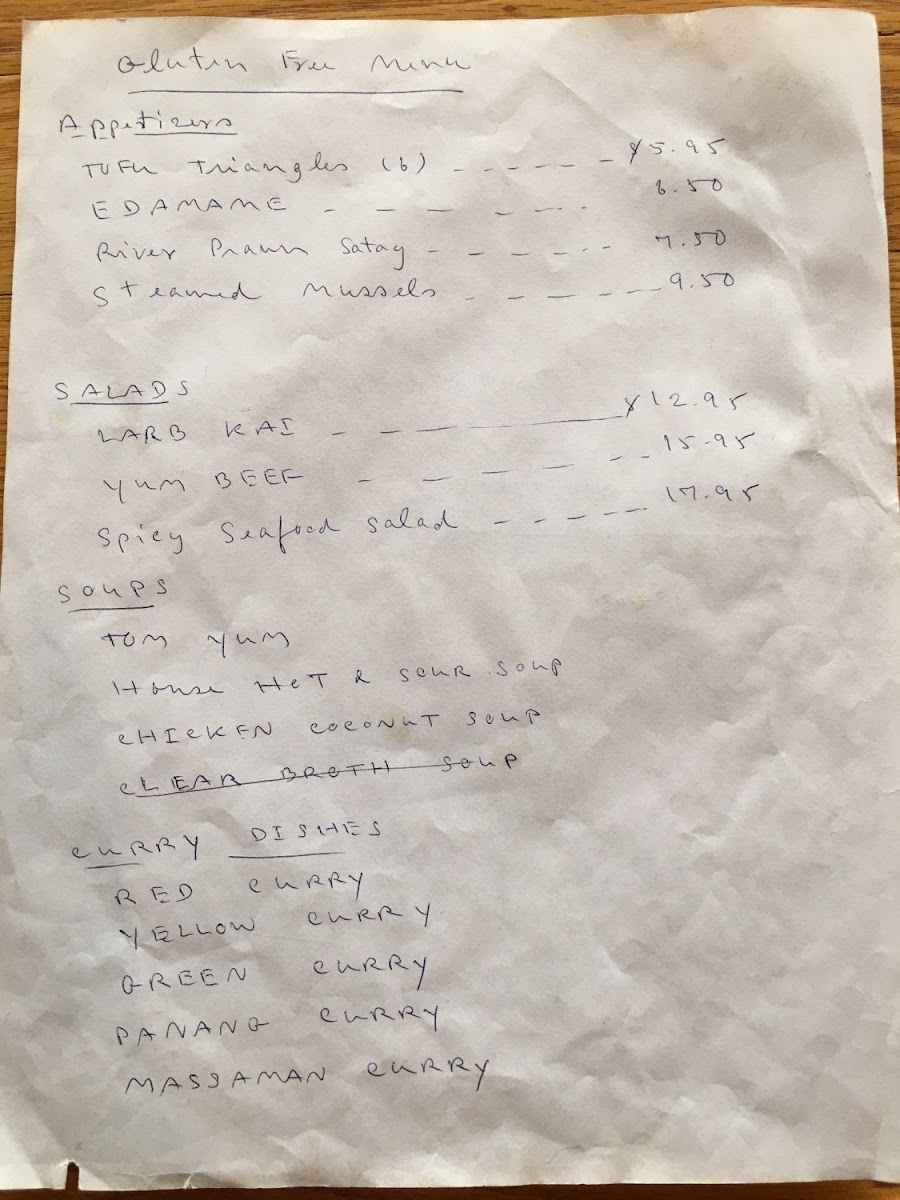 Gluten Free Menu
Appetizers
TUFU Triangles (6) - - - - - - $5.95
EDAMAME - - - - - - 6.50
River Prawn Satay - - - - - - 7.50
Steamed Mussels - - - - - 9.50
SALADS
LARB KAI - - - $12.95
YUM BEEF - - - - - - 15.95
Spicy Seafood Salad - - - - - 17.95
SOUPS
TOM YUM
House HOT & SOUR SOUP
CHICKEN COCONUT SOUP
CLEAR BROTH SOUP
CURRY DISHES
RED CURRY
YELLOW CURRY
GREEN CURRY
PANANG CURRY
MASSAMAN CURRY